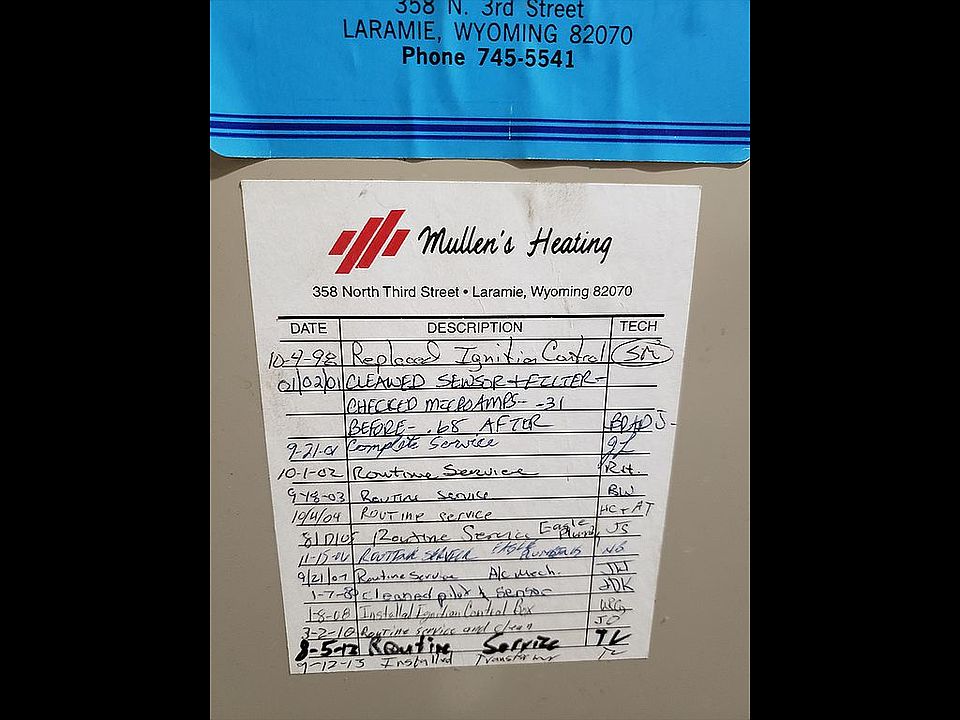 358 N. 3rd Street
LARAMIE, WYOMING 82070
Phone 745-5541
Mullen's Heating
358 North Third Street • Laramie, Wyoming 82070
DATE DESCRIPTION TECH
10-9-98 Replaced Ignition Control SM
01/02/01 CLEANED SENSOR + FILTER-
CHECKED MICROAMPS- -31
BEFORE- .68 AFTER BRAD J-
9-21-01 Complete Service
10-1-02 Routine Service RH.
9-18-03 Routine Service BW
10/4/04 ROUTINE SERVICE HC + AT
Routine Service Eagle Plumb JS
11-15-06 ROUTINE EAGLE
9/21/07 Routine Service A/C Mech. JW
1-7-8 Cleaned pilot & sensor JDK
1-8-08 Install Ignition Control Box
3-2-10 Routine service and clean JO
8-5-12 Routine Service TL
9-12-13 Installed Transformer TL